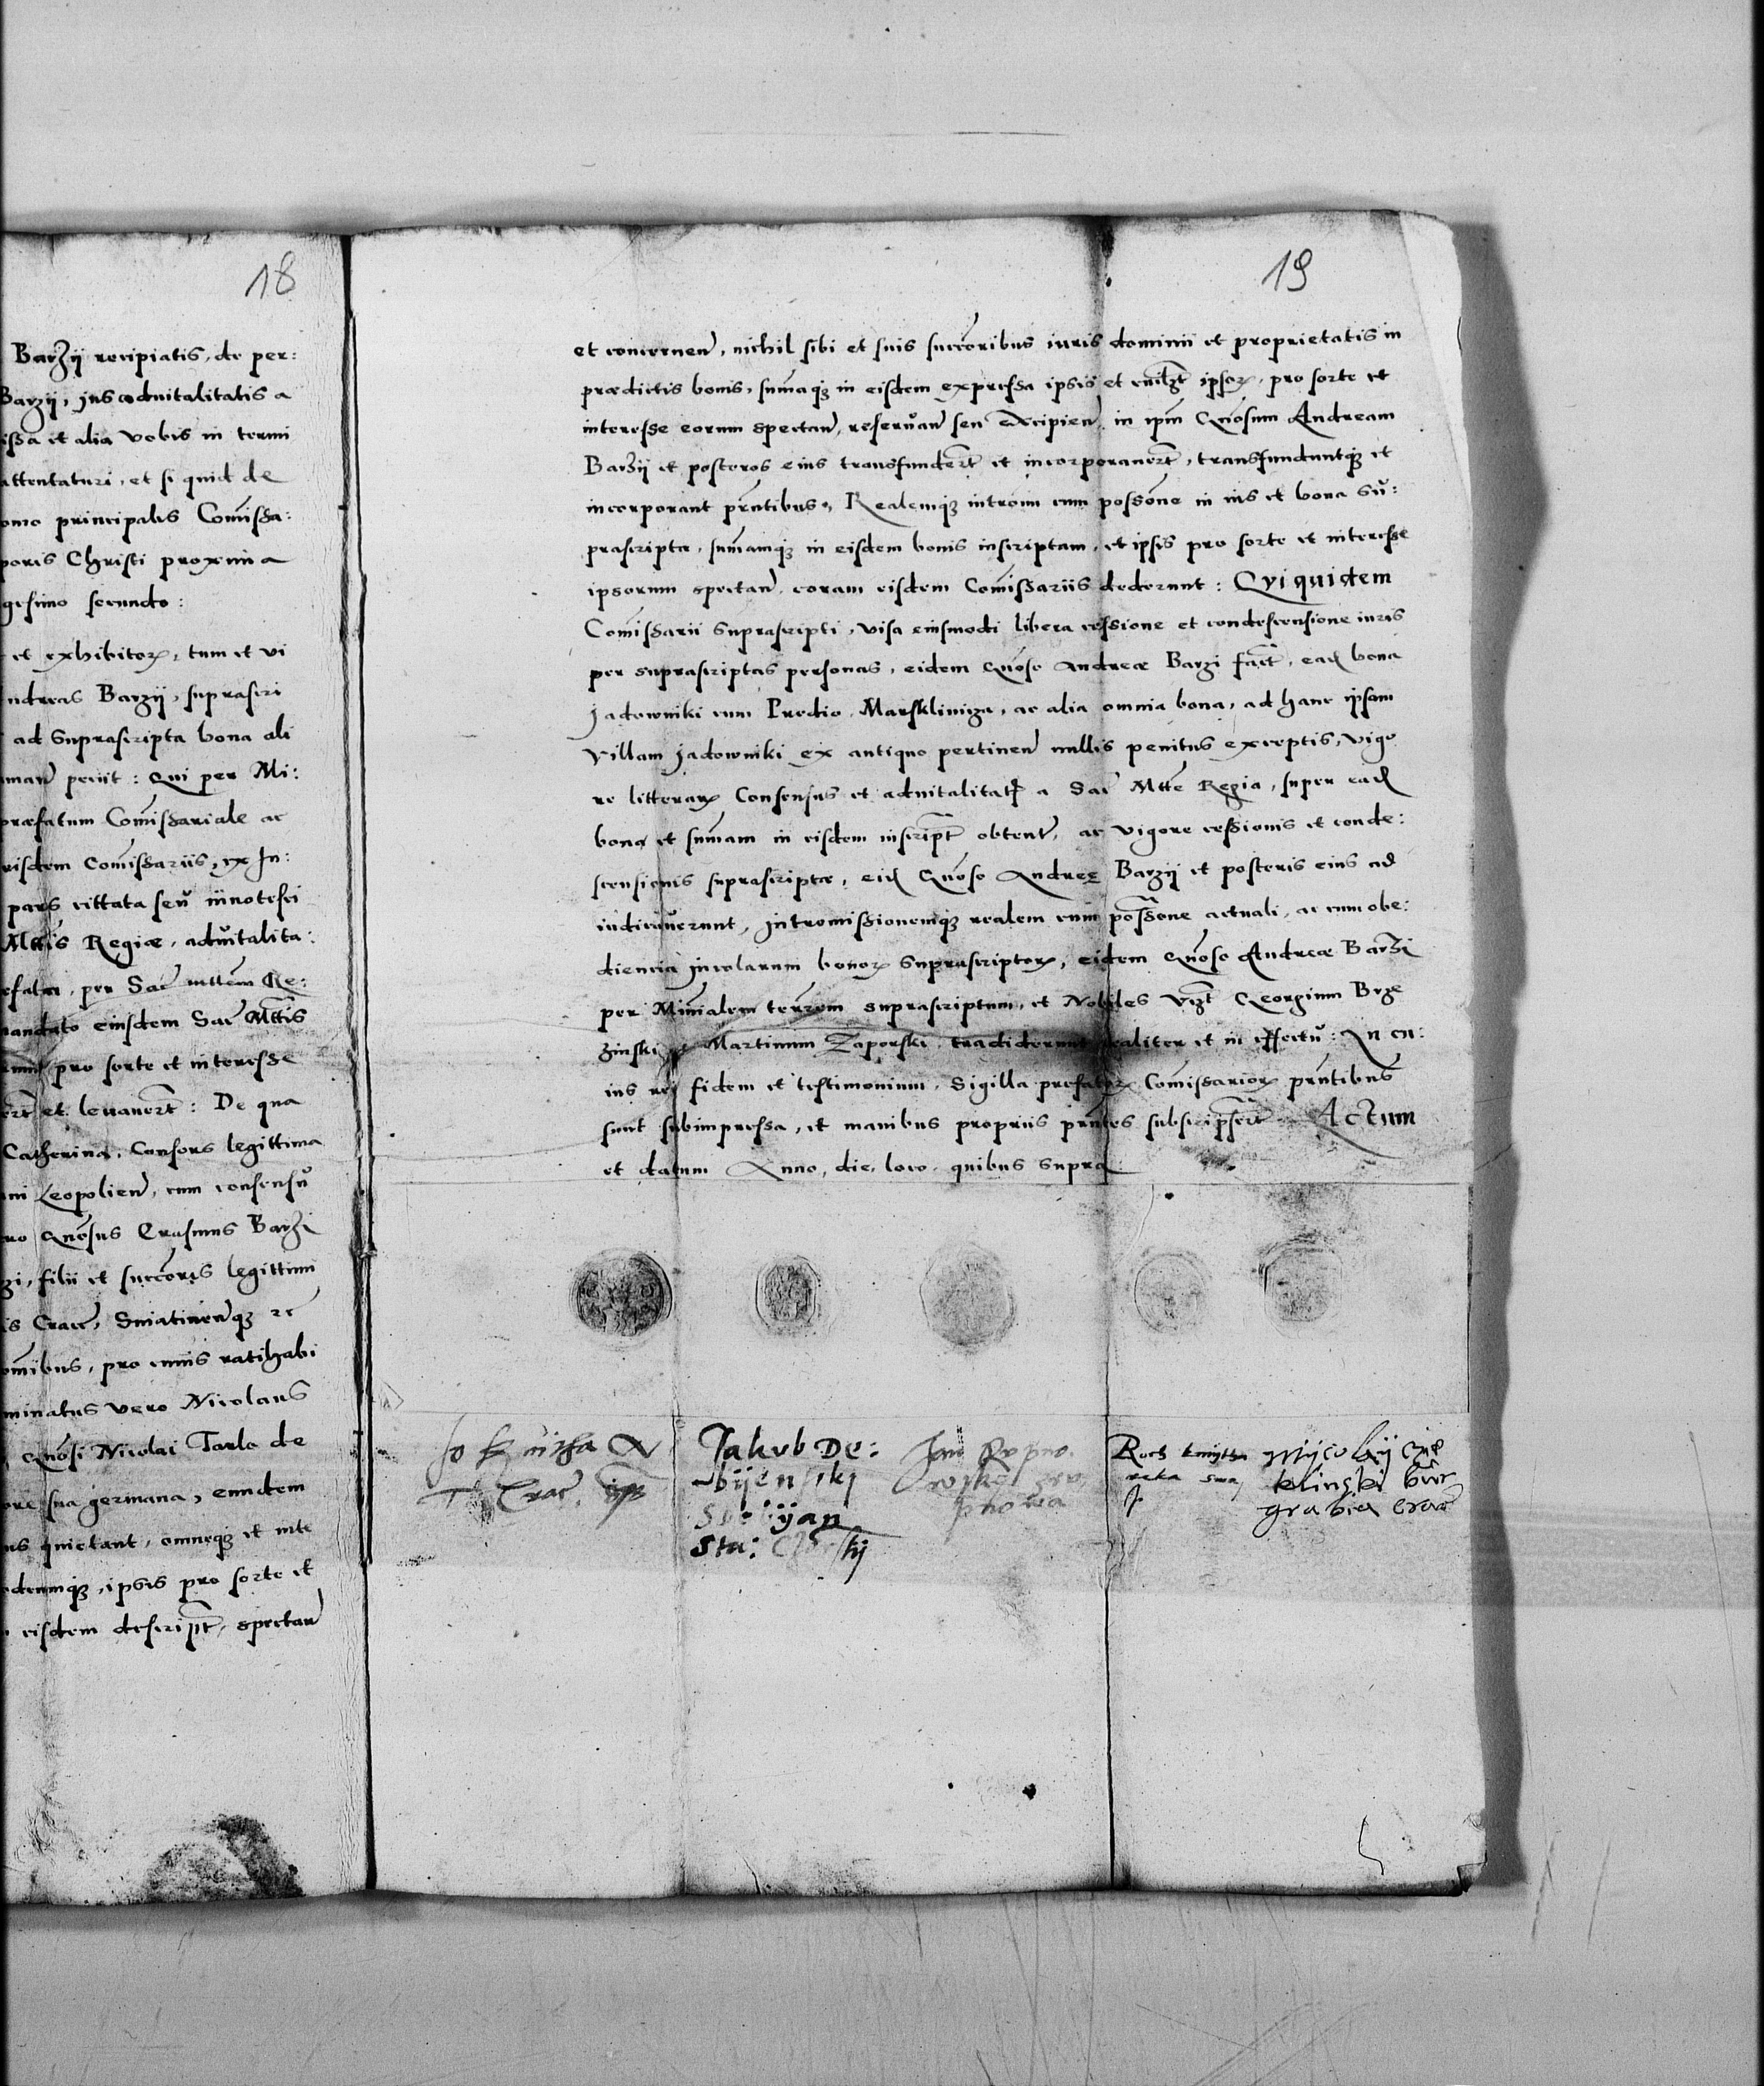 18
Barzÿ recipiatis, de per:
Barzÿ, jus advitalitatis a
issa et alia vobis in termi
attentaturi, et si quid de
omo principalis Com̃issa:
poris Christi proxima
gesimo secundo:
et exhibitoꝝ, tum et vi
ndreas Barzÿ, suprascri
ad Suprascripta bona ali
petiit: Qui per Mi:
præfatum Com̃issariale ac
eisdem Com̃issariis, ex In:
pars cittata seu innotesci
Mttis Regiæ, advitalita:
per Sac̃ mttem Re:
mandato eiusdem Sac̃ Mttis
pro sorte et interesse
et levaver̃t: De qua
Catherina, Consors legittima
Leopolien̄, cum consensu
Gn̄osus Erasmus Barzi
zi, filii et succ̄oris legittimi
is Crac̃, Sniatinen̄qȝ et
om̄ibus, pro cuius ratihabi
minatus vero Nicolaus
Gn̄osi Nicolai Tarlo de
ore sua germana, eundem
us quietant, omneqȝ et inte
demqȝ, ipsis pro sorte et
eisdem descript̃, spectan̄
19
et concernen̄, nichil sibi et suis succ̄oribus iuris dominii et proprietatis in
prædictis bonis, sum̃aqȝ in eisdem expressa ipsis et cuilȝt ipsoꝝ, pro sorte et
interesse eorum spectan̄, reseruan̄ seu excipien̄, in ip̄m Gn̄osum Andream
Barzÿ et posteros eius transfunder̃t et incorporauer̃t, transfunduntqȝ et
incorporant p̄ntibus, Realemqȝ intro͞m cum poss̄one in ius et bona su:
prascripta, sum̃amqȝ in eisdem bonis inscriptam, et ipsis pro sorte et interesse
ipsorum spectan̄, coram eisdem Com̃issariis dederunt: Qui quidem
Com̃issarii Suprascripti, visa eiusmodi libera cessione et condescensione iuris
per suprascriptas personas, eidem Gn̄oso Andreæ Barzi fact̃, ead̄ bona
Jadowniki cum Predio, ac alia omnia bona, ad hanc ipsam
villam Jadowniki ex antiquo pertinen̄ nullis penitus exceptis, vigo
re litteraꝝ Consensus et advitalitat̃ a Sac̃ Mtte Regia, super ead̄
bona et sum̃am in eisdem inscript̃ obtent̃, ac vigore cessionis et conde:
scensionis suprascriptæ, eid̄ Gn̄oso Andreę Barzÿ et posteris eius ad
iudicauerunt, Intromissionemqȝ realem cum poss̄one actuali, ac cum obe:
diencia incolarum bonoꝝ Suprascriptoꝝ, eidem Gn̄oso Andreæ Barzi
per Min̄ialem terr̄em suprascriptum, et Nobiles vizt Georgium Brze
zinski et Martinum Zaporski, tradiderunt realiter et in effectu: In cu:
ius rei fidem et testimonium, Sigilla prefatoꝝ Com̃issarioꝝ p̄ntibus
sunt subimpressa, et manibus propriis p̄ntes subscripser̃t Actum
et datum Anno, die, loco, quibus supra
Jakub De:
bijenskj
Jan
Roch kmijtha
reka swa
Mijcolaij
klinski bur
grabia crac̃